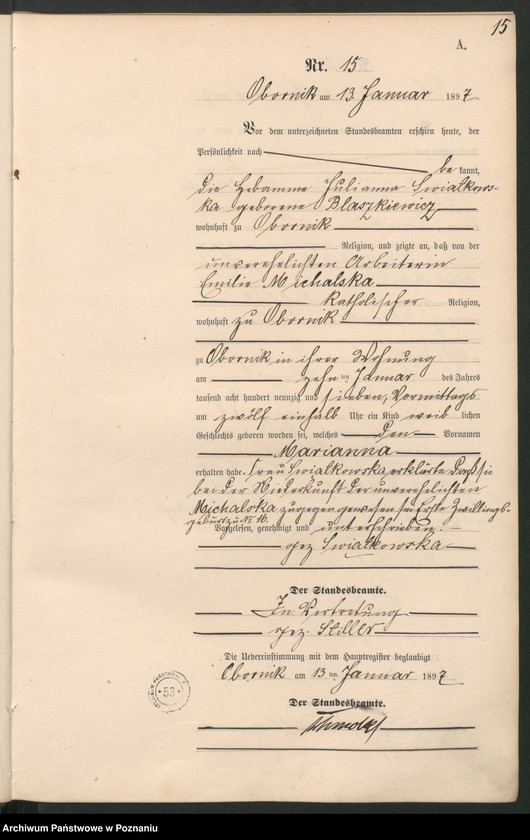 15
A.
Nr. 15
Obornik am 13. Januar 1897
Vor dem unterzeichneten Standesbeamten erschien heute, der
Persönlichkeit nach
be kannt,
die Hebamme Julianna Swialkows-
ka geborene Blaszkiewicz
wohnhaft zu Obornik
Religion, und zeigte an, daß von der
unverehelichten Arbeiterin
Emilie Michalska
katholischer Religion,
wohnhaft zu Obornik
zu Obornik in ihrer Wohnung
am zehn ten Januar des Jahres
tausend acht hundert neunzig und sieben, Vormittags
um zwölf einhalb Uhr ein Kind weib lichen
Geschlechts geboren worden sei, welches den Vornamen
Marianna
erhalten habe. Frau Swialkowska erklärte daß sie
bei der Niederkunft der unverehelichten
Michalska zugegen gewesen sei Erste Zwillings-
geburt zu Nr. 16.
Vorgelesen, genehmigt und unterschrieben.
gez Swialkowska
Der Standesbeamte.
In Vertretung
gez. Stiller
Die Uebereinstimmung mit dem Hauptregister beglaubigt
Obornik am 13 ten Januar 1897
Der Standesbeamte.
53
Archiwum Państwowe w Poznaniu